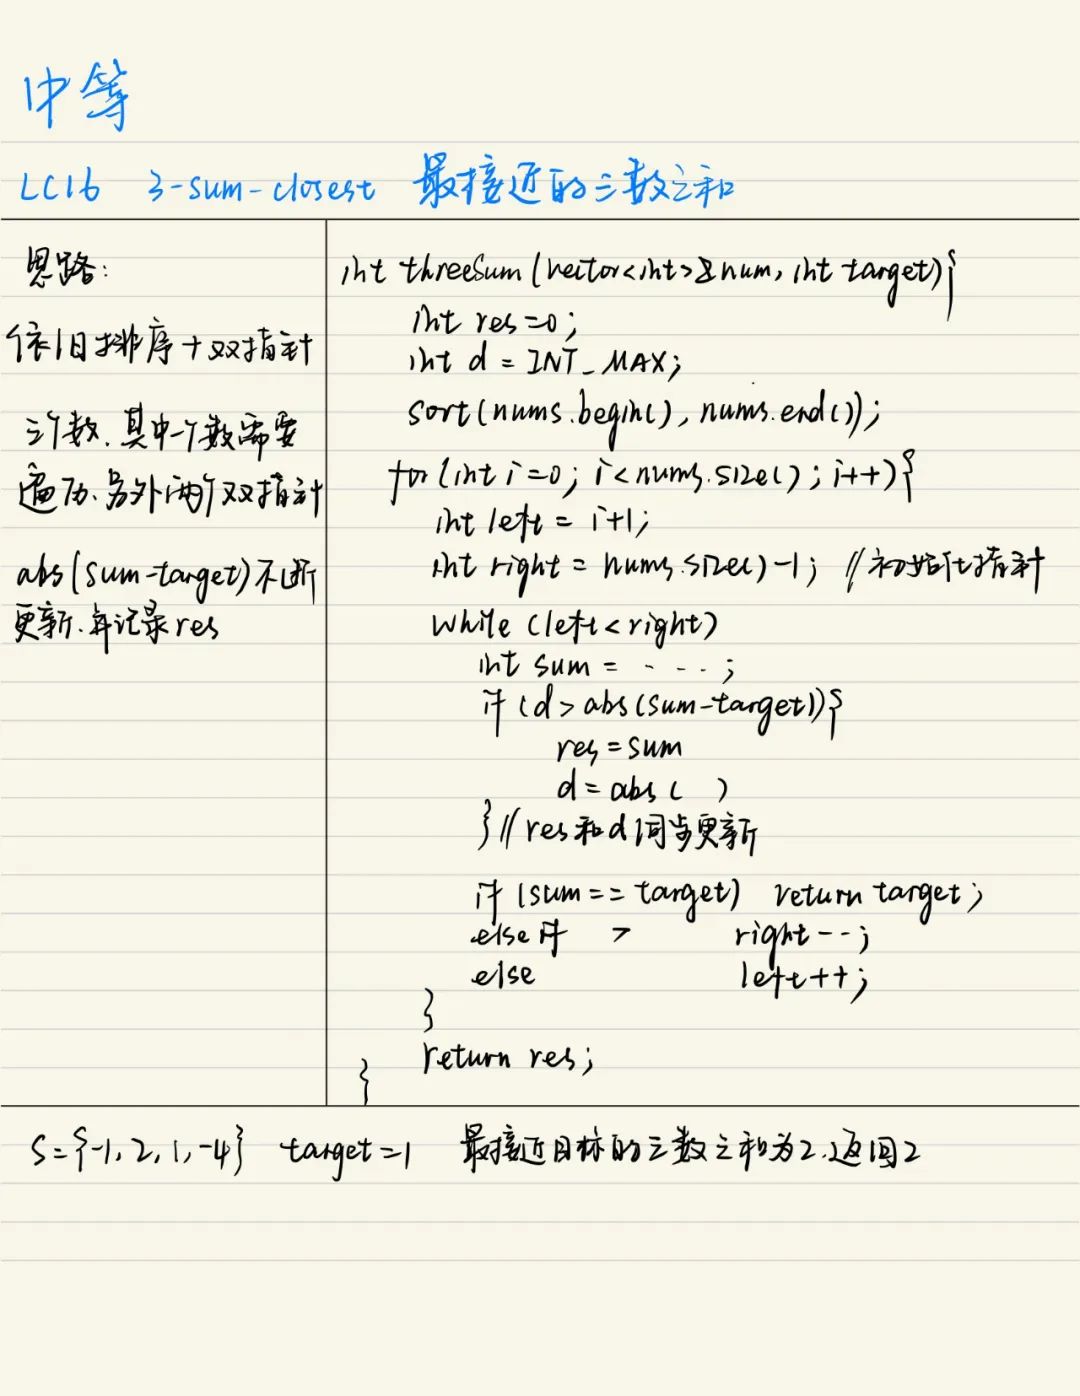 中等
LC16 3-sum-closest 最接近的三数之和
思路:
依旧排序+双指针
三个数,其中一个数需要
遍历、另外两个双指针
abs(sum-target)不断
更新.并记录res
int threeSum(vector<int>&num, int target){
int res=0;
int d = INT_MAX;
sort(nums.begin(), nums.end());
for(int i=0; i<nums.size(); i++){
int left = i+1;
int right = nums.size()-1; //初始化指针
while (left<right)
int sum = - - -;
if (d>abs(sum-target)){
res=sum
d=abs( )
}//res和d同步更新
if (sum==target) return target;
else if > right--;
else left++;
}
return res;
}
S={-1,2,1,-4} target=1 最接近目标的三数之和为2.返回2